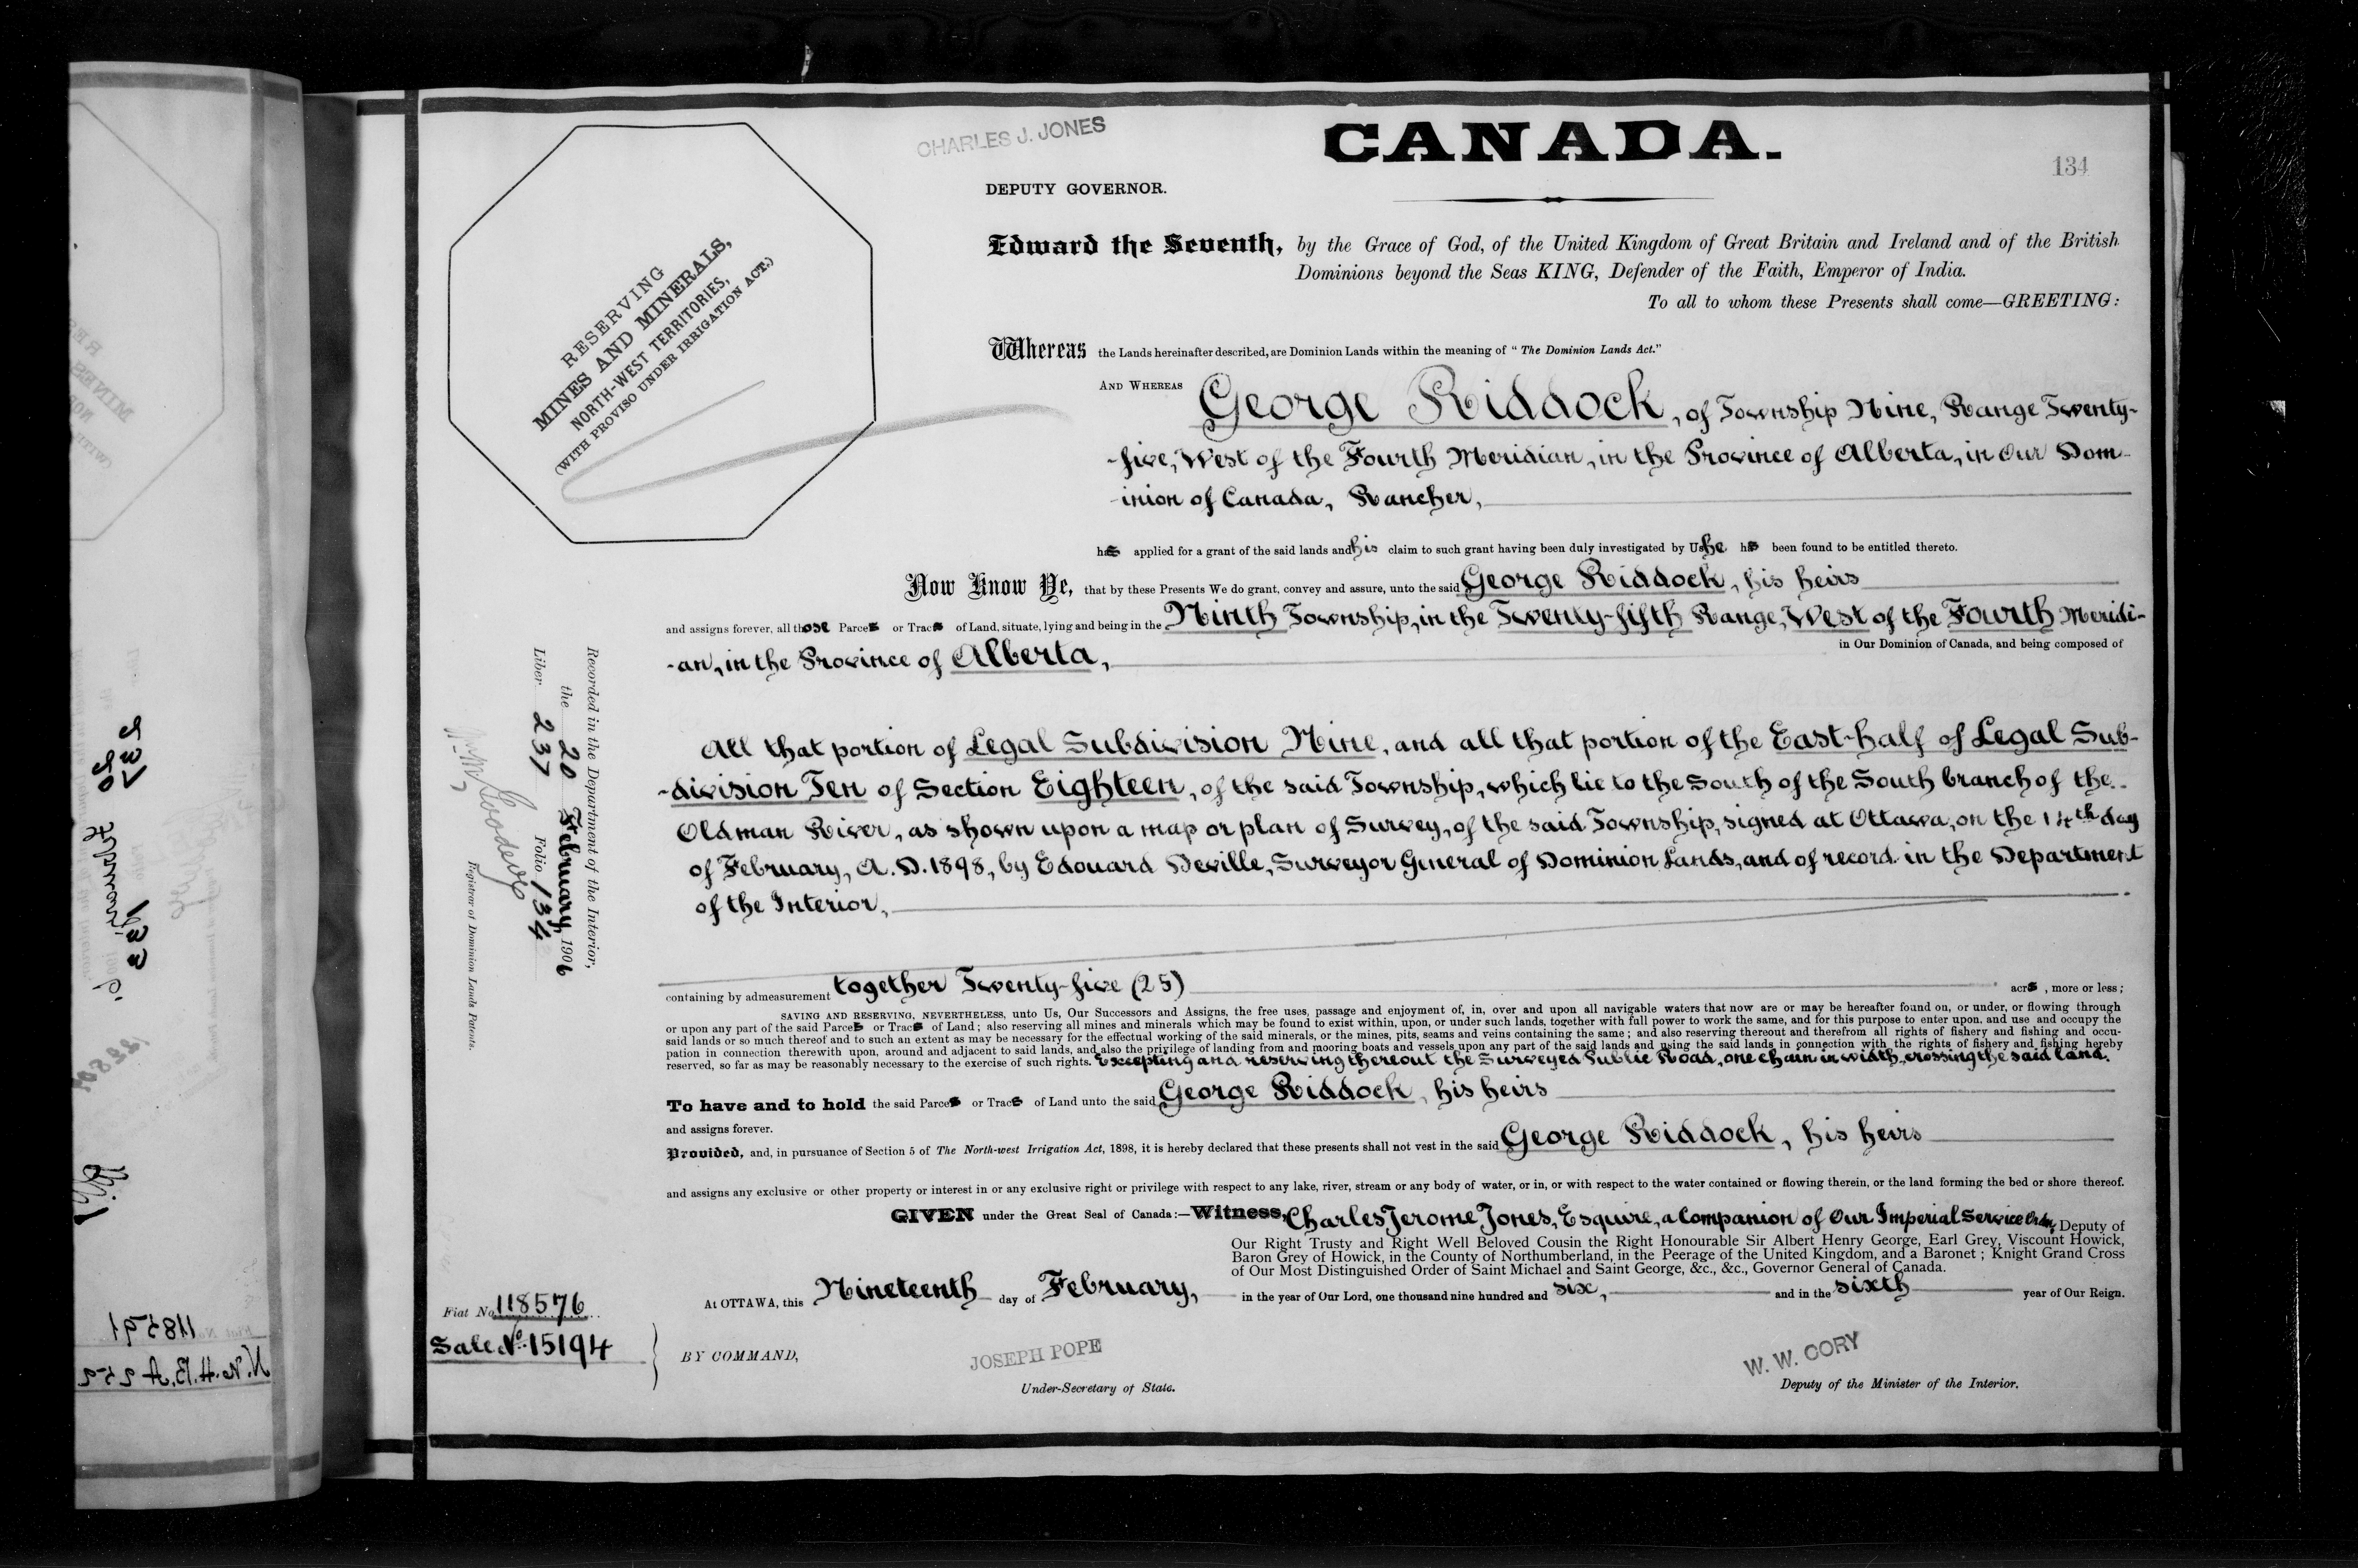 CANADA.
134
CHARLES J. JONES
DEPUTY GOVERNOR.
RESERVING
MINES AND MINERALS,
NORTH-WEST TERRITORIES,
(WITH PROVISO UNDER IRRIGATION ACT.)
Edward the Seventh, by the Grace of God, of the United Kingdom of Great Britain and Ireland and of the British
Dominions beyond the Seas KING, Defender of the Faith, Emperor of India.
To all to whom these Presents shall come—GREETING:
Whereas the Lands hereinafter described, are Dominion Lands within the meaning of "The Dominion Lands Act."
AND WHEREAS George Riddock, of Township Nine, Range Twenty-
-five, West of the Fourth Meridian, in the Province of Alberta, in Our Dom-
-inion of Canada, Rancher,
has applied for a grant of the said lands and his claim to such grant having been duly investigated by Us he has been found to be entitled thereto.
Now Know Ye, that by these Presents We do grant, convey and assure, unto the said George Riddock, his heirs
and assigns forever, all those Parcels or Tracts of Land, situate, lying and being in the Ninth Township, in the Twenty-fifth Range, West of the Fourth Meridi-
-an, in the Province of Alberta, in Our Dominion of Canada, and being composed of
All that portion of Legal Subdivision Nine, and all that portion of the East-half of Legal Sub-
-division Ten of Section Eighteen, of the said Township, which lie to the South of the South branch of the
Oldman River, as shown upon a map or plan of Survey, of the said Township, signed at Ottawa, on the 14th day
of February, A.D. 1898, by Edouard Deville, Surveyor General of Dominion Lands, and of record in the Department
of the Interior,
containing by admeasurement together Twenty-five (25) acres, more or less;
SAVING AND RESERVING, NEVERTHELESS, unto Us, Our Successors and Assigns, the free uses, passage and enjoyment of, in, over and upon all navigable waters that now are or may be hereafter found on, or under, or flowing through
or upon any part of the said Parcels or Tracts of Land; also reserving all mines and minerals which may be found to exist within, upon, or under such lands, together with full power to work the same, and for this purpose to enter upon, and use and occupy the
said lands or so much thereof and to such an extent as may be necessary for the effectual working of the said minerals, or the mines, pits, seams and veins containing the same; and also reserving thereout and therefrom all rights of fishery and fishing and occu-
pation in connection therewith upon, around and adjacent to said lands, and also the privilege of landing from and mooring boats and vessels upon any part of the said lands and using the said lands in connection with the rights of fishery and fishing hereby
reserved, so far as may be reasonably necessary to the exercise of such rights. Excepting and reserving thereout the Surveyed Public Road, one chain in width, crossing the said land.
To have and to hold the said Parcels or Tracts of Land unto the said George Riddock, his heirs
and assigns forever.
Provided, and, in pursuance of Section 5 of The North-west Irrigation Act, 1898, it is hereby declared that these presents shall not vest in the said George Riddock, his heirs
and assigns any exclusive or other property or interest in or any exclusive right or privilege with respect to any lake, river, stream or any body of water, or in, or with respect to the water contained or flowing therein, or the land forming the bed or shore thereof.
GIVEN under the Great Seal of Canada:—Witness, Charles Jerome Jones, Esquire, a Companion of Our Imperial Service Order, Deputy of
Our Right Trusty and Right Well Beloved Cousin the Right Honourable Sir Albert Henry George, Earl Grey, Viscount Howick,
Baron Grey of Howick, in the County of Northumberland, in the Peerage of the United Kingdom, and a Baronet; Knight Grand Cross
of Our Most Distinguished Order of Saint Michael and Saint George, &c., &c., Governor General of Canada.
At OTTAWA, this Nineteenth day of February, in the year of Our Lord, one thousand nine hundred and six, and in the sixth year of Our Reign.
BY COMMAND,
JOSEPH POPE
Under-Secretary of State.
W. W. CORY
Deputy of the Minister of the Interior.
Recorded in the Department of the Interior,
the 20 February, 1906
Liber 237 Folio 134
Registrar of Dominion Lands Patents.
Fiat No. 118576
Sale No. 15194
118591
N.W.H.B.A 252